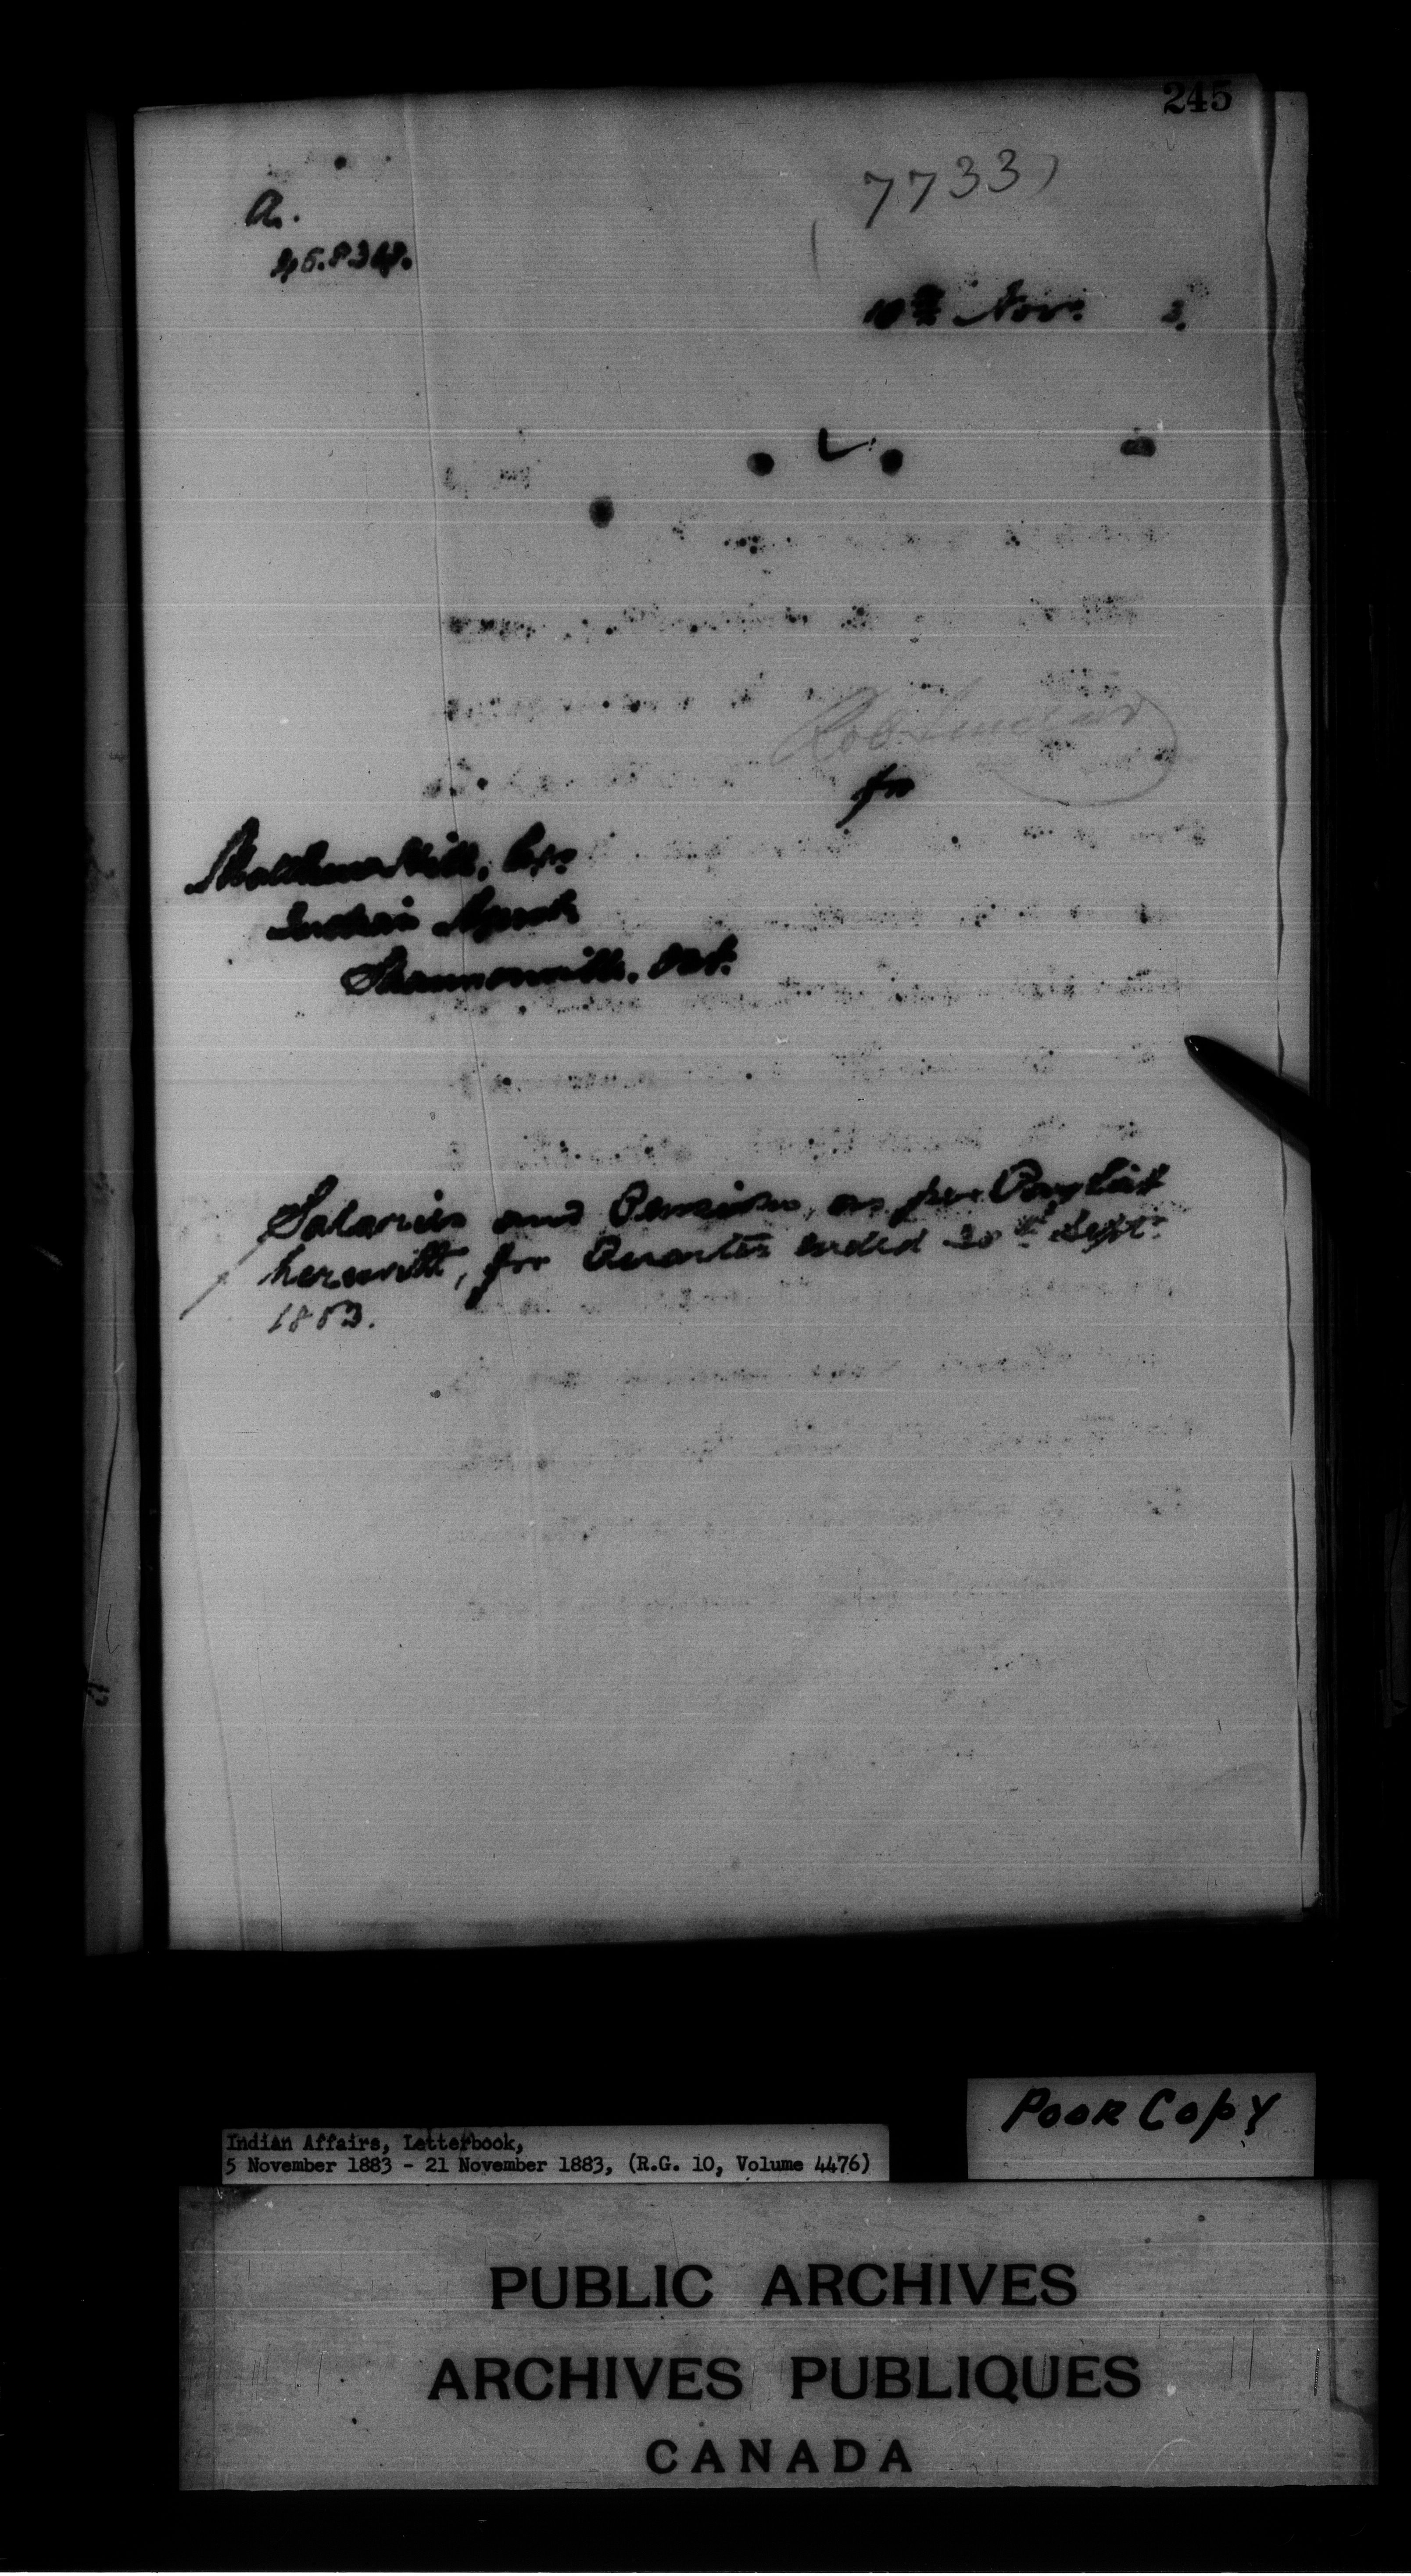 245
7733
A.
10th Nov. 3.
Rob. Sinclair
for
Matthew Hill, Esq.
Indian Agent
Shannonville, Ont.
Salaries and Pensions, as per Pay List
herewith, for Quarter ended 30th Sept.
1883.
Poor Copy
Indian Affairs, Letterbook,
5 November 1883 - 21 November 1883, (R.G. 10, Volume 4476)
PUBLIC ARCHIVES
ARCHIVES PUBLIQUES
CANADA